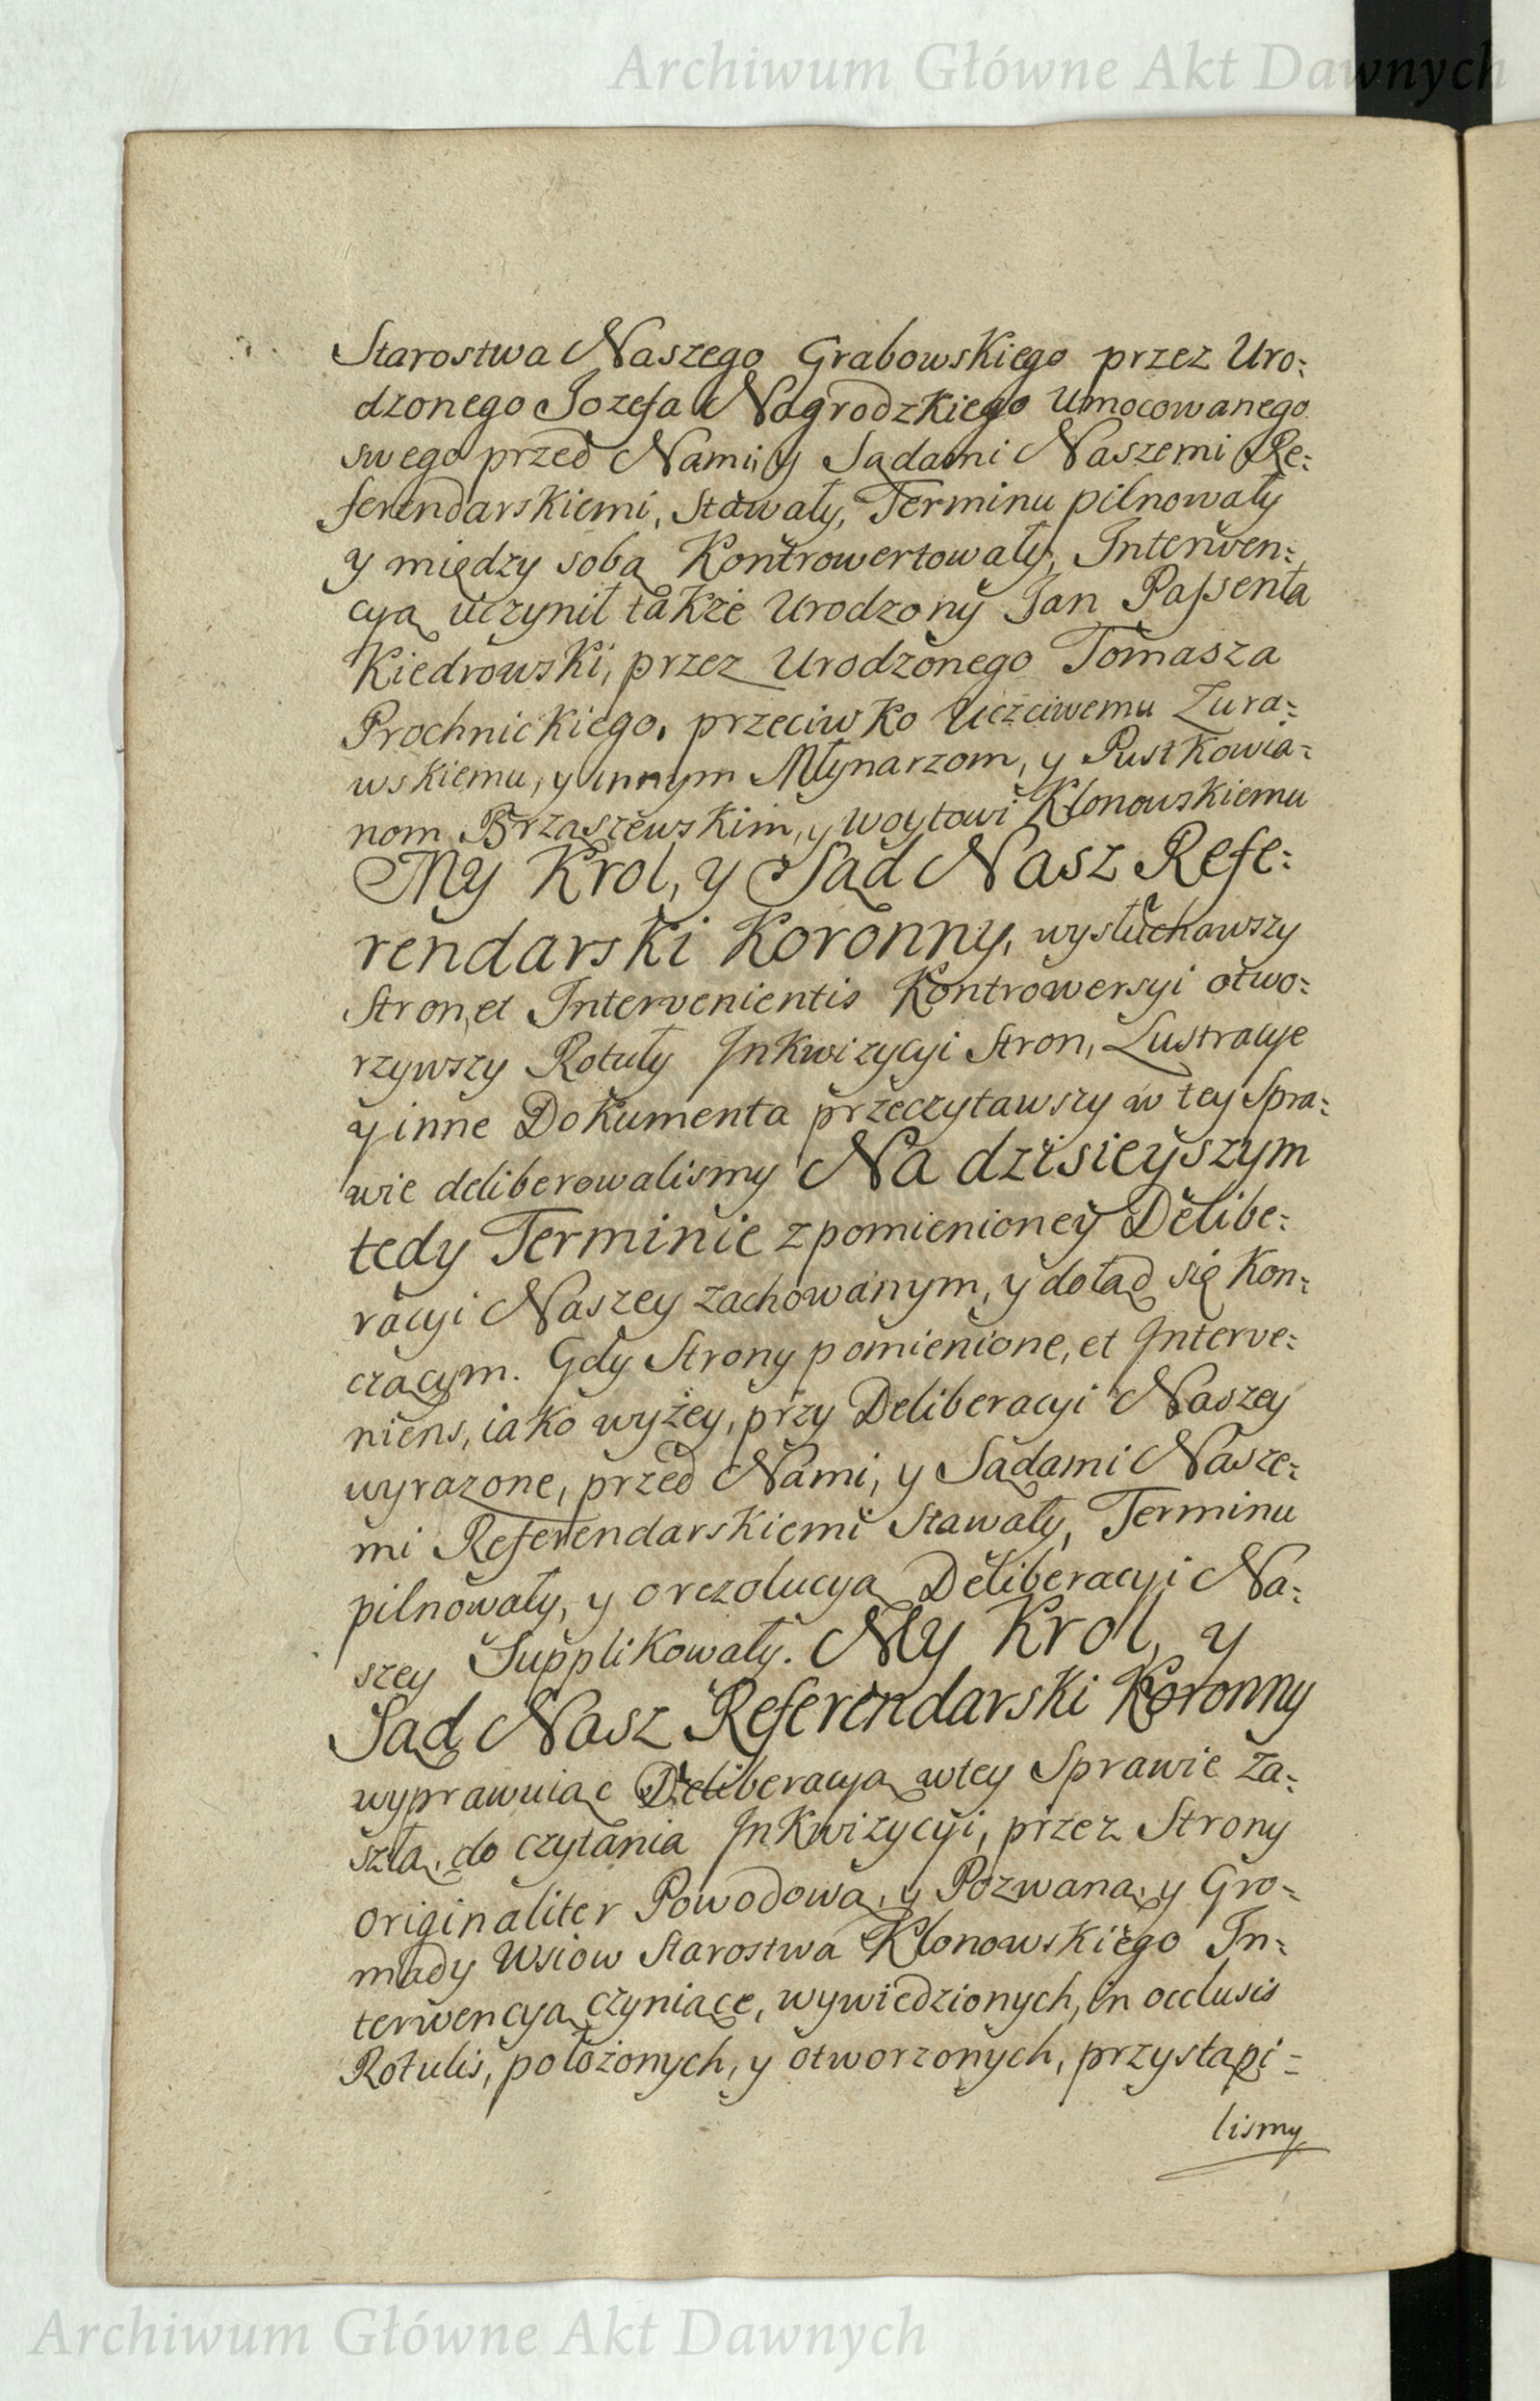 Archiwum Główne Akt Dawnych
Starostwa Naszego Grabowskiego przez Uro:
dzonego Jozefa Nagrodzkiego Umocowanego
swego przed Nami, y Sądami Naszemi Re:
ferendarskiemi, Stawały, Terminu pilnowały
y między sobą Kontrowertowały, Interwen:
cyą uczynił także Urodzony Jan Passenta
Kiedrowski, przez Urodzonego Tomasza
Prochnickiego, przeciwko Uczciwemu Zura:
wskiemu, y innym Młynarzom, y Pustkowia:
nom Brzaszewskim, y Woytowi Klonowskiemu
My Krol, y Sąd Nasz Refe:
rendarski Koronny, wysłuchawszy
Stron, et Intervenientis Kontrowersyi otwo:
rzywszy Rotuły Inkwizycyi Stron, Lustracye
y inne Dokumenta przeczytawszy w tey Spra:
wie deliberowalismy Na dzisieyszym
tedy Terminie z pomienioney Delibe:
racyi Naszey zachowanym, y dotąd się Kon:
czącym. Gdy Strony pomienione, et Interve:
niens, iako wyżey, przy Deliberacyi Naszey
wyrazone, przed Nami, y Sądami Nasze:
mi Referendarskiemi Stawały, Terminu
pilnowały, y o rezolucyą Deliberacyi Na:
szey Supplikowały. My Krol, y
Sąd Nasz Referendarski Koronny
wyprawuiąc Deliberacyą w tey Sprawie za:
szłą, do czytania Inkwizycyi, przez Strony
originaliter Powodową, y Pozwaną, y Gro:
mady Wsiow Starostwa Klonowskiego In:
terwencyą czyniące, wywiedzionych, in occlusis
Rotulis, położonych, y otworzonych, przystąpi:
lismy
Archiwum Główne Akt Dawnych